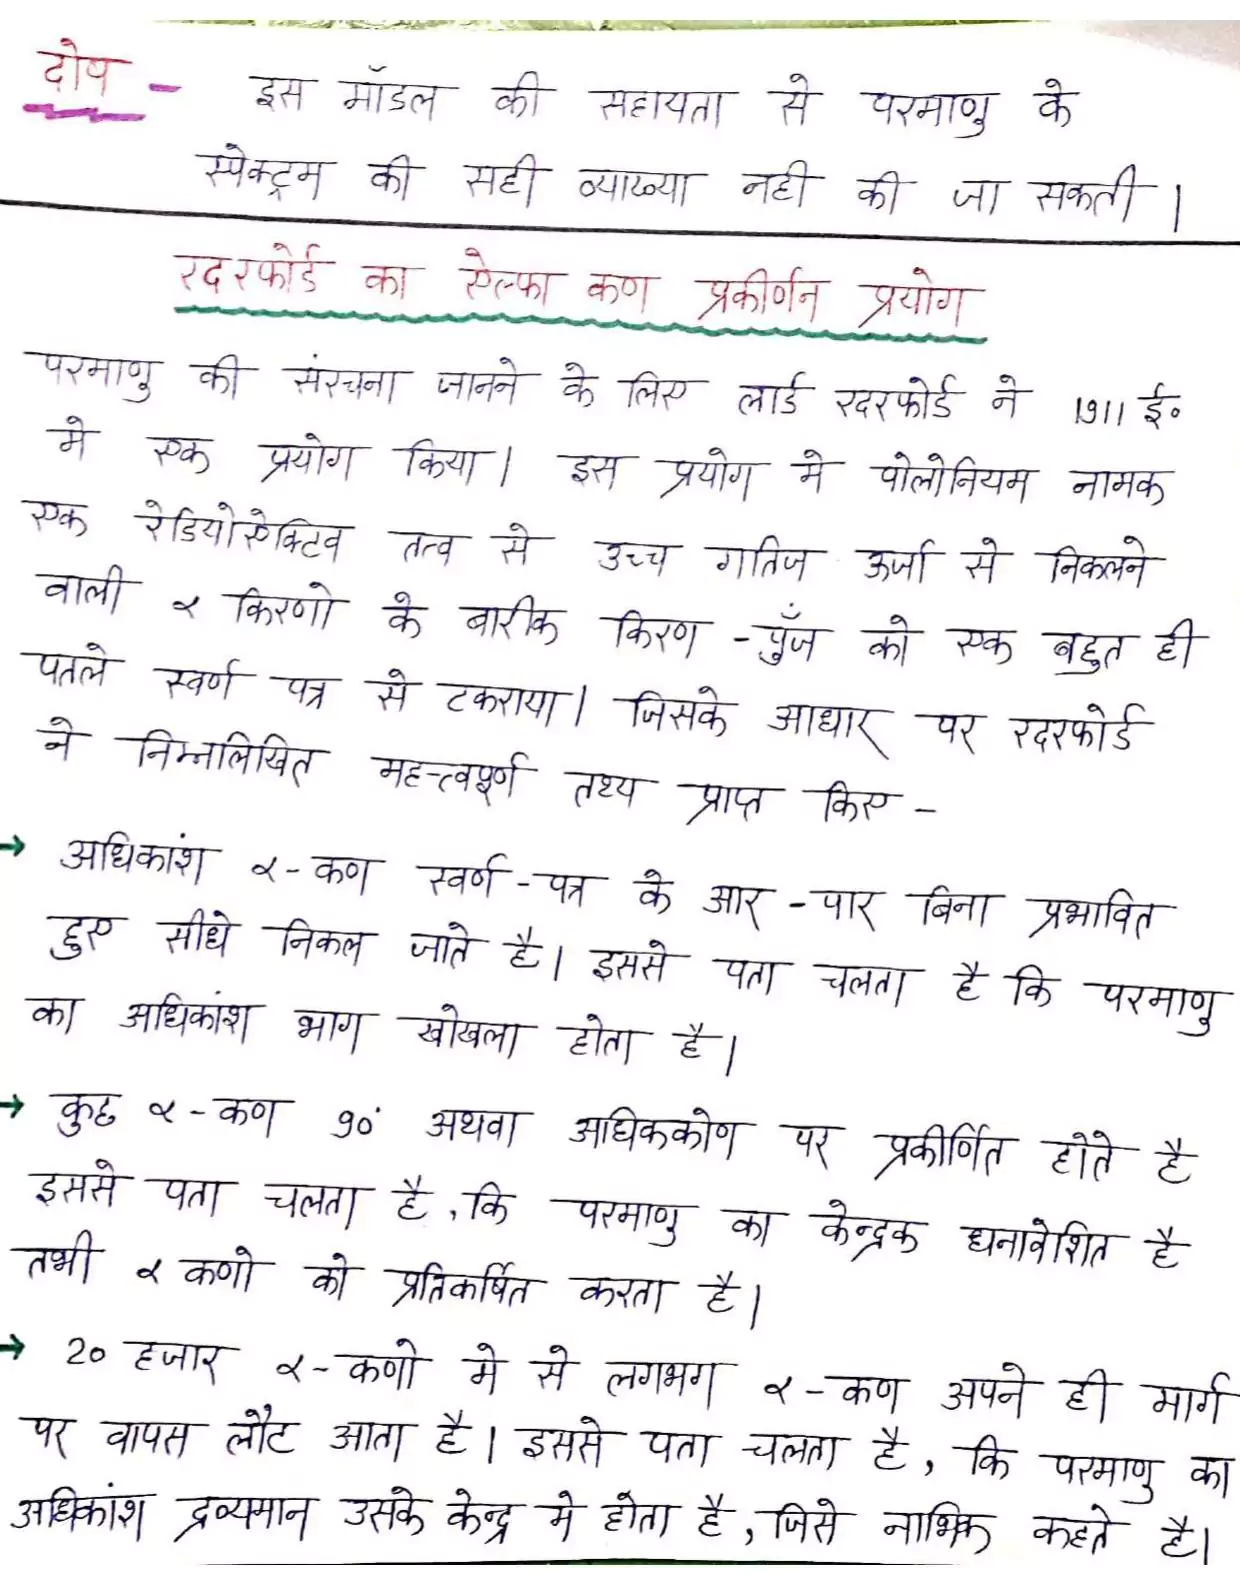 दोष - इस मॉडल की सहायता से परमाणु के
स्पेक्ट्रम की सही व्याख्या नही की जा सकती।
रदरफोर्ड का ऐल्फा कण प्रकीर्णन प्रयोग
परमाणु की संरचना जानने के लिए लार्ड रदरफोर्ड ने 1911 ई०
मे एक प्रयोग किया। इस प्रयोग मे पोलोनियम नामक
एक रेडियोऐक्टिव तत्व से उच्च गतिज ऊर्जा से निकलने
वाली α किरणो के बारीक किरण - पुँज को एक बहुत ही
पतले स्वर्ण पत्र से टकराया। जिसके आधार पर रदरफोर्ड
ने निम्नलिखित महत्त्वपूर्ण तथ्य प्राप्त किए -
→ अधिकांश α - कण स्वर्ण - पत्र के आर - पार बिना प्रभावित
हुए सीधे निकल जाते है। इससे पता चलता है कि परमाणु
का अधिकांश भाग खोखला होता है।
→ कुछ α - कण 90° अथवा अधिककोण पर प्रकीर्णित होते है
इससे पता चलता है, कि परमाणु का केन्द्रक धनावेशित है
तभी α कणो को प्रतिकर्षित करता है।
→ 20 हजार α - कणो मे से लगभग α - कण अपने ही मार्ग
पर वापस लौट आता है। इससे पता चलता है, कि परमाणु का
अधिकांश द्रव्यमान उसके केन्द्र मे होता है, जिसे नाभिक कहते है।